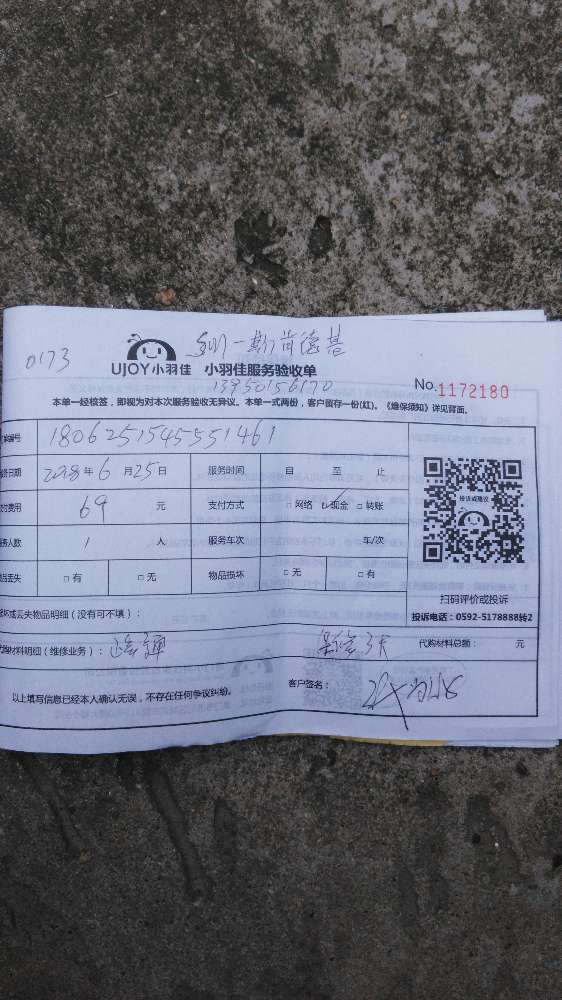 0173
UJOY小羽佳 小羽佳服务验收单
斯肯德基
13950156170
No.1172180
本单一经核签，即视为对本次服务验收无异议。本单一式两份，客户留存一份(红)。《维保须知》详见背面。
编号 1806251545551461
日期 2018年6月25日 服务时间 自 至 止
费用 69 元 支付方式 □网络 ☑现金 □转账
人数 1 人 服务车次 车/次
丢失 □有 □无 物品损坏 □无 □有
坏或丢失物品明细（没有可不填）：
购材料明细（维修业务）： 保修3天 代购材料总额： 元
以上填写信息已经本人确认无误，不存在任何争议纠纷。 客户签名：
投诉或建议
扫码评价或投诉
投诉电话：0592-5178888转2